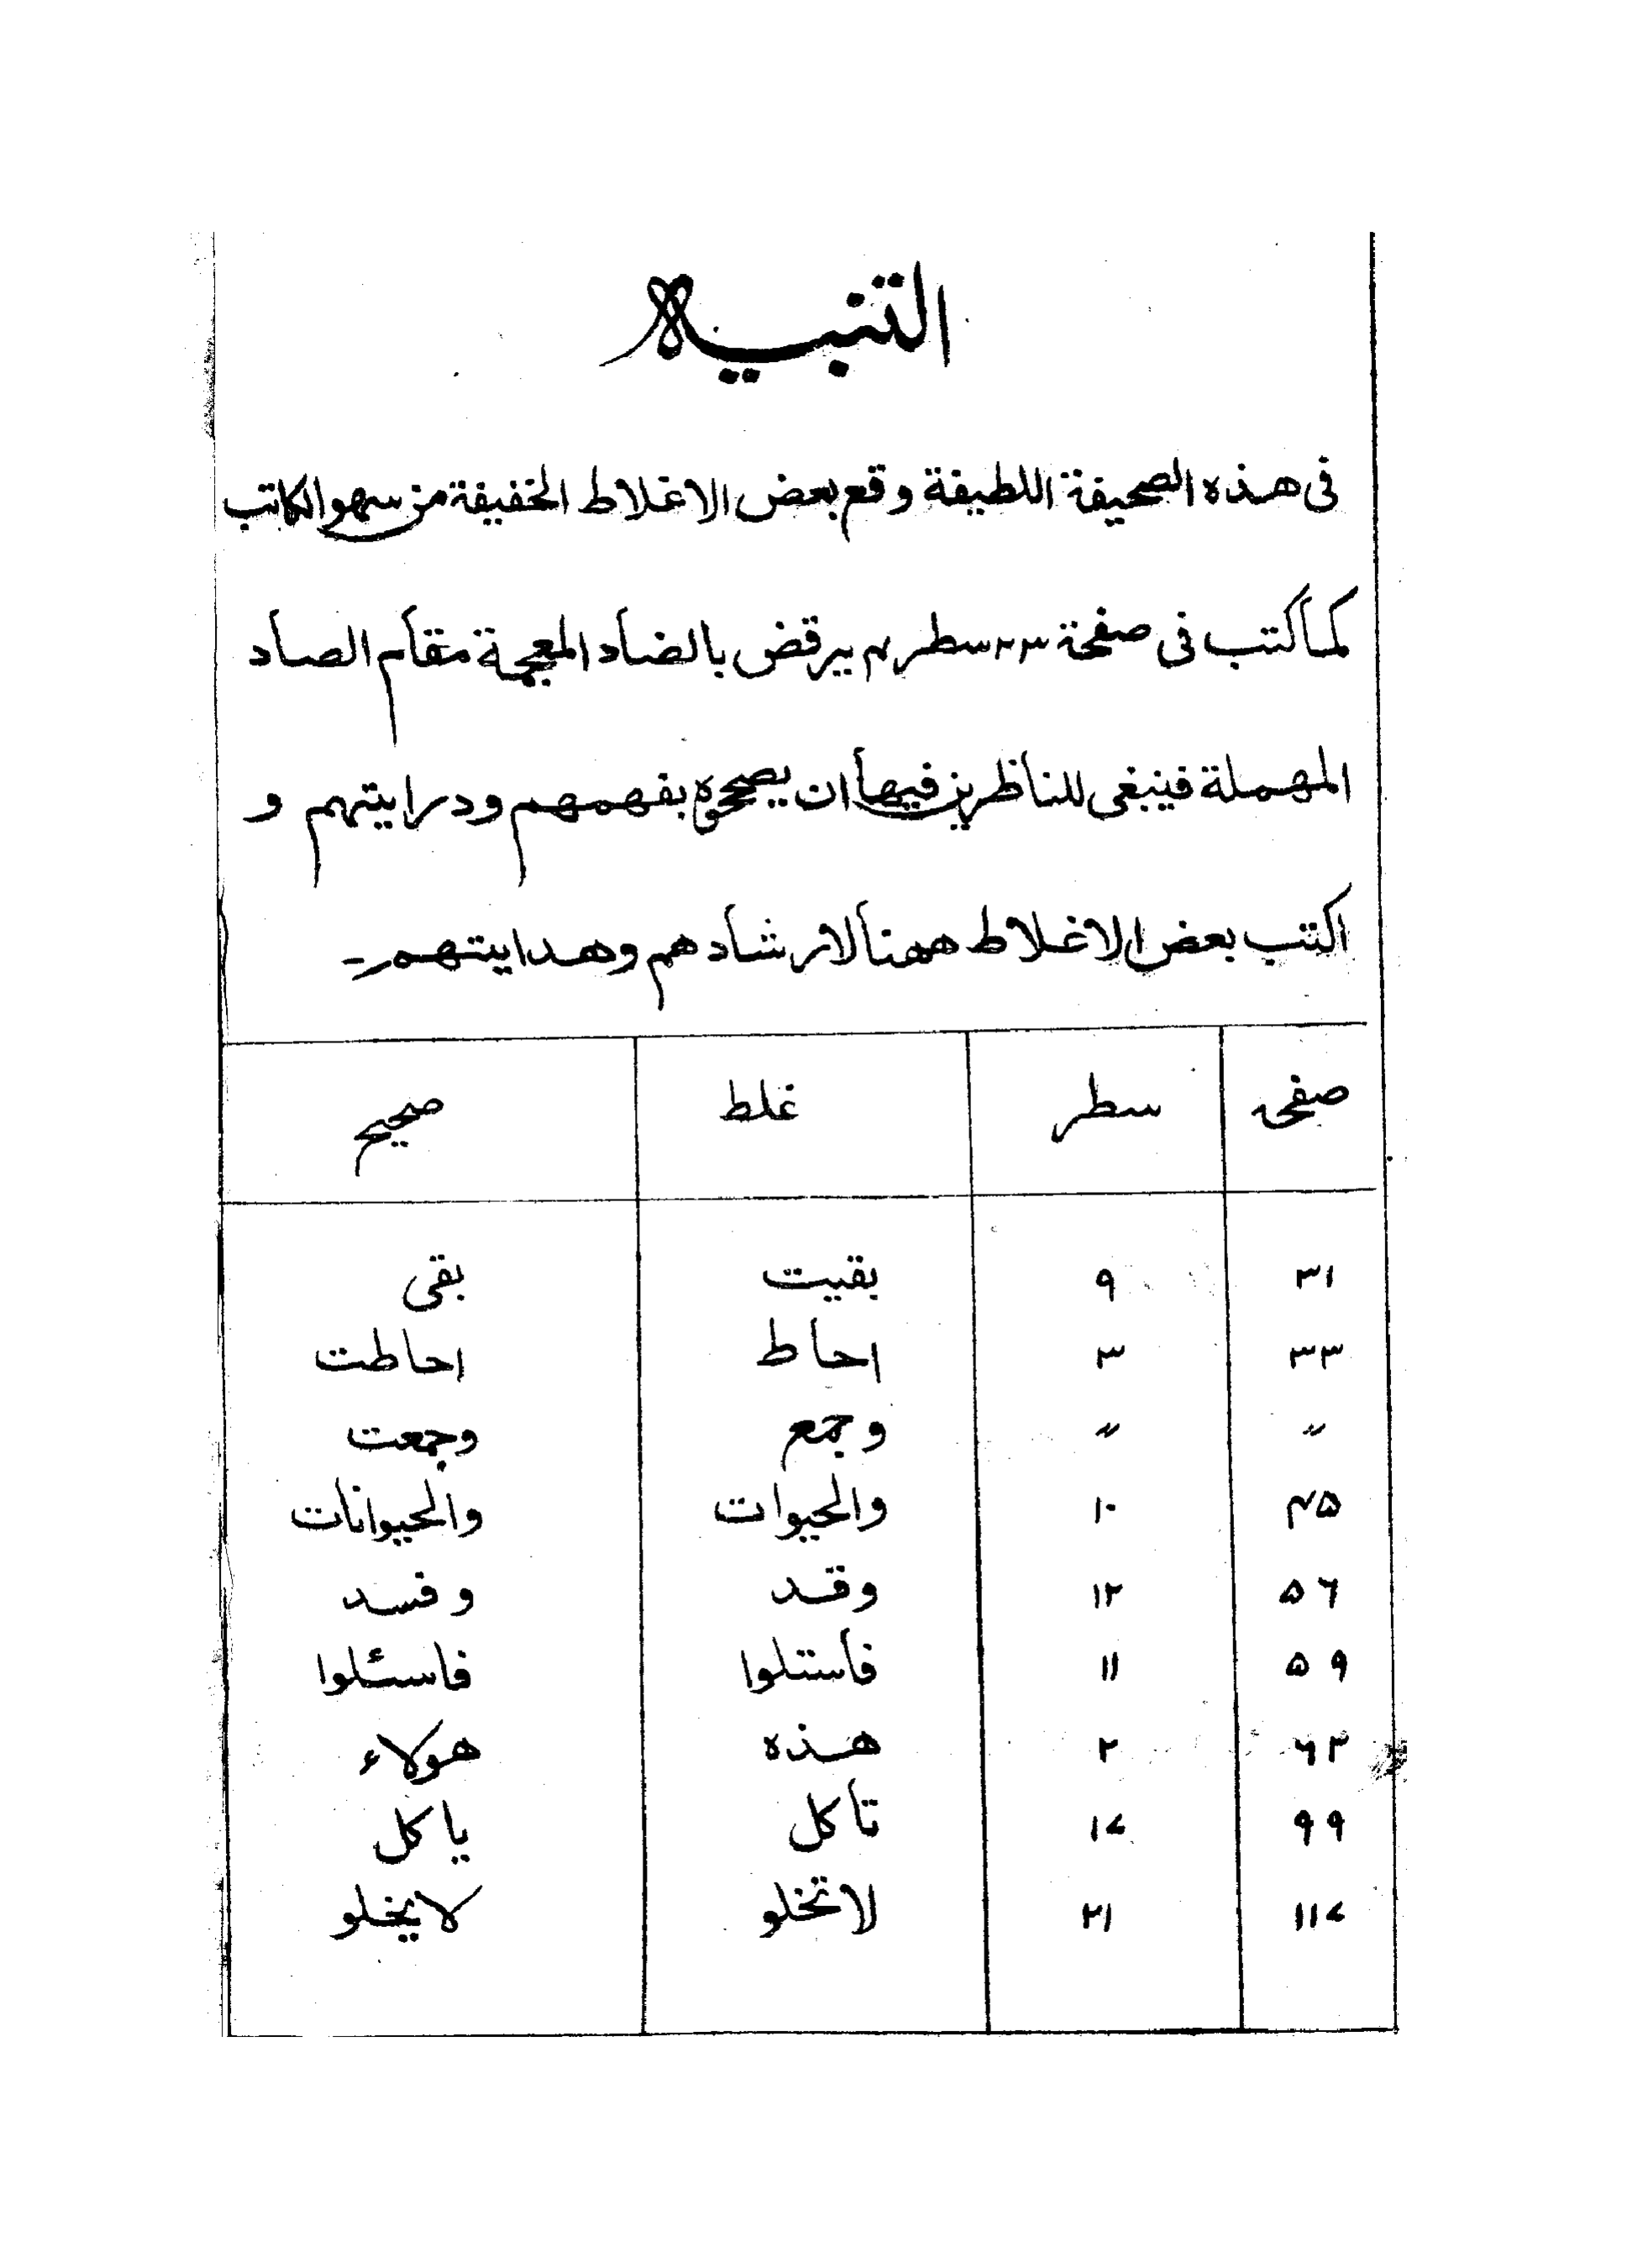 التنبيه
فى هذه الصحيفة اللطيفة وقع بعض الاغلاط الخفيفة من سهو الكاتب
كما كتب فى صفحة ۲۳ سطر ۴ يرقض بالضاد المعجمة مقام الصاد
المهملة فينبغى للناظرين فيها ان يصححوه بفهمهم ودرايتهم و
اكتب بعض الاغلاط ههنا لارشادهم وهدايتهم ـ
صفحہ سطر غلط صحيح
۳۱ ۹ بقيت بقى
۳۳ ۳ احاط احاطت
〃 〃 وجمع وجمعت
۴۵ ۱۰ والحيوات والحيوانات
۵۶ ۱۲ وقد وفسد
۵۹ ۱۱ فاستلوا فاسئلوا
۶۳ ۲ هذه هولاء
۹۹ ۱۷ تاكل ياكل
۱۱۷ ۲۱ لا تخلو لا يخلو